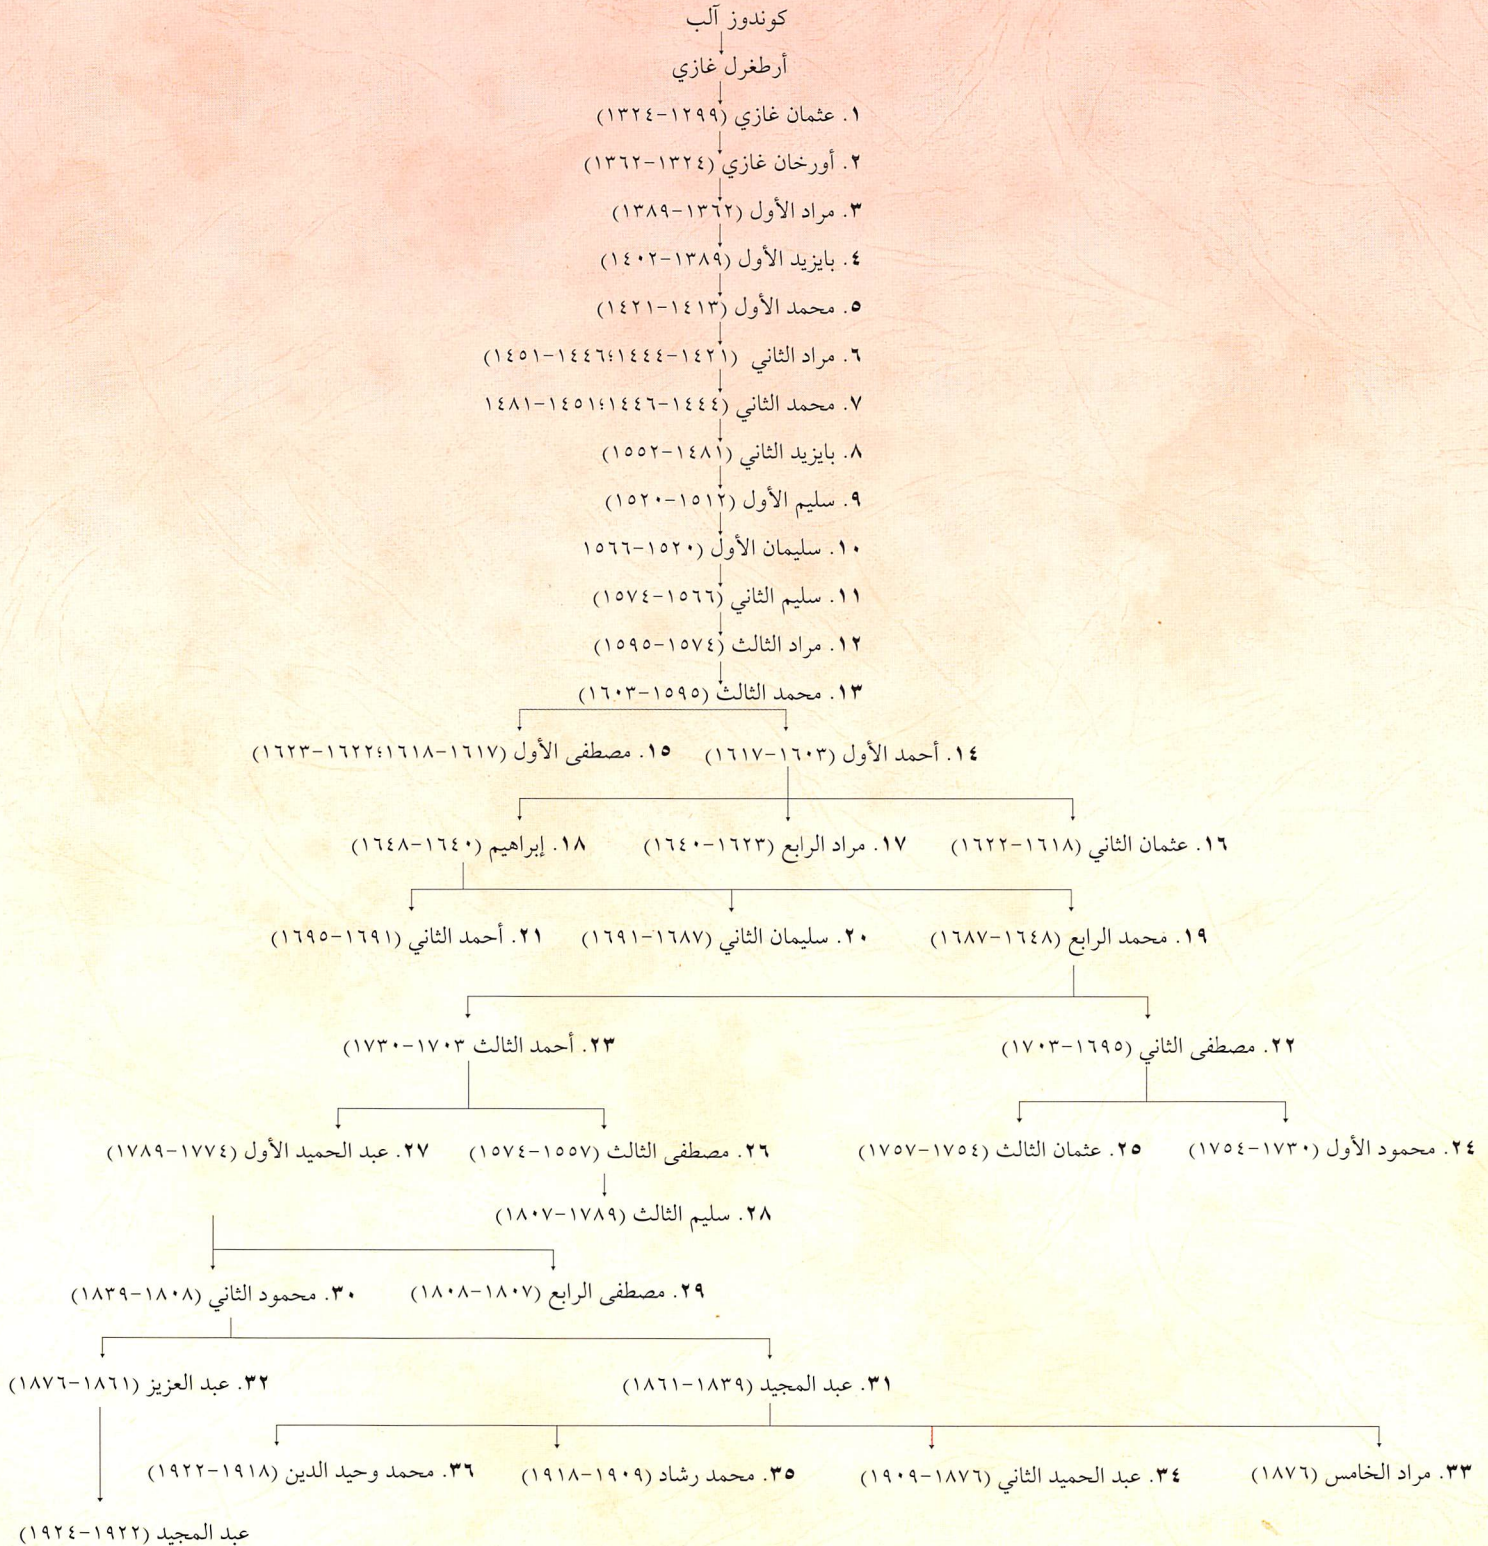 كوندوز آلب
أرطغرل غازي
١. عثمان غازي (١٢٩٩-١٣٢٤)
٢. أورخان غازي (١٣٢٤-١٣٦٢)
٣. مراد الأول (١٣٦٢-١٣٨٩)
٤. بايزيد الأول (١٣٨٩-١٤٠٢)
٥. محمد الأول (١٤١٣-١٤٢١)
٦. مراد الثاني (١٤٢١-١٤٤٤؛١٤٤٦-١٤٥١)
٧. محمد الثاني (١٤٤٤-١٤٤٦؛١٤٥١-١٤٨١
٨. بايزيد الثاني (١٤٨١-١٥٥٢)
٩. سليم الأول (١٥١٢-١٥٢٠)
١٠. سليمان الأول (١٥٢٠-١٥٦٦
١١. سليم الثاني (١٥٦٦-١٥٧٤)
١٢. مراد الثالث (١٥٧٤-١٥٩٥)
١٣. محمد الثالث (١٥٩٥-١٦٠٣)
١٤. أحمد الأول (١٦٠٣-١٦١٧) ١٥. مصطفى الأول (١٦١٧-١٦١٨؛١٦٢٢-١٦٢٣)
١٦. عثمان الثاني (١٦١٨-١٦٢٢) ١٧. مراد الرابع (١٦٢٣-١٦٤٠) ١٨. إبراهيم (١٦٤٠-١٦٤٨)
١٩. محمد الرابع (١٦٤٨-١٦٨٧) ٢٠. سليمان الثاني (١٦٨٧-١٦٩١) ٢١. أحمد الثاني (١٦٩١-١٦٩٥)
٢٢. مصطفى الثاني (١٦٩٥-١٧٠٣) ٢٣. أحمد الثالث ١٧٠٣-١٧٣٠)
٢٤. محمود الأول (١٧٣٠-١٧٥٤) ٢٥. عثمان الثالث (١٧٥٤-١٧٥٧) ٢٦. مصطفى الثالث (١٥٥٧-١٥٧٤) ٢٧. عبد الحميد الأول (١٧٧٤-١٧٨٩)
٢٨. سليم الثالث (١٧٨٩-١٨٠٧)
٢٩. مصطفى الرابع (١٨٠٧-١٨٠٨) ٣٠. محمود الثاني (١٨٠٨-١٨٣٩)
٣١. عبد المجيد (١٨٣٩-١٨٦١) ٣٢. عبد العزيز (١٨٦١-١٨٧٦)
٣٣. مراد الخامس (١٨٧٦) ٣٤. عبد الحميد الثاني (١٨٧٦-١٩٠٩) ٣٥. محمد رشاد (١٩٠٩-١٩١٨) ٣٦. محمد وحيد الدين (١٩١٨-١٩٢٢)
عبد المجيد (١٩٢٢-١٩٢٤)